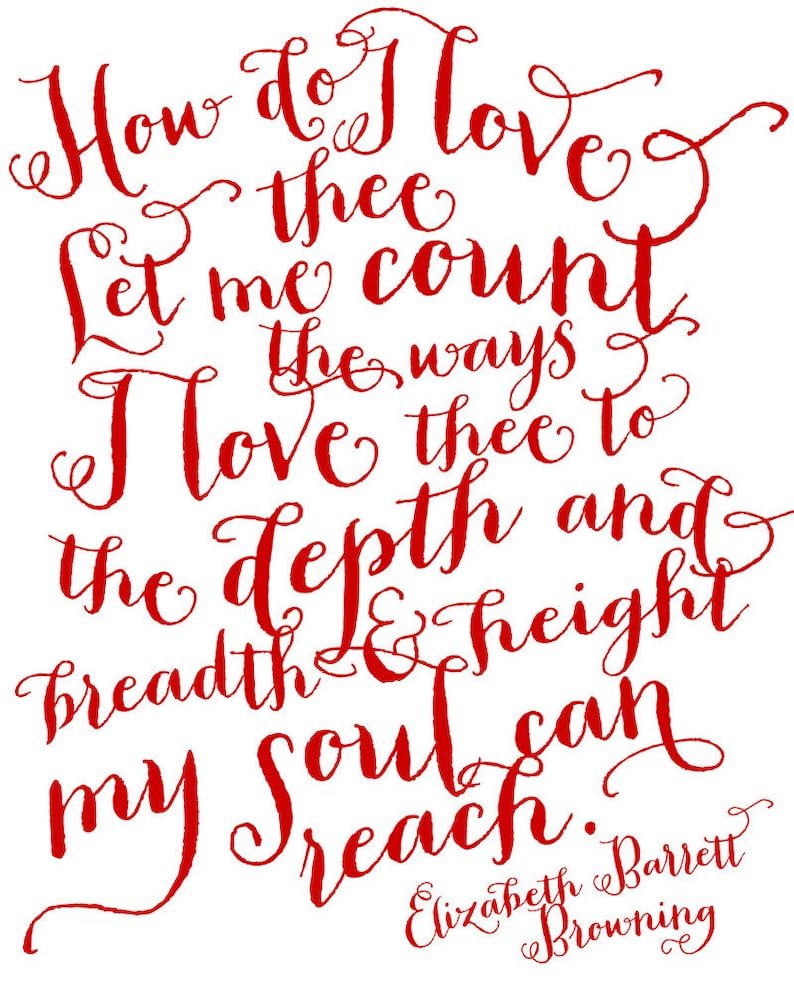 How do I love
thee
Let me count
the ways
I love thee to
the depth and
breadth & height
my soul can
reach.
Elizabeth Barrett
Browning